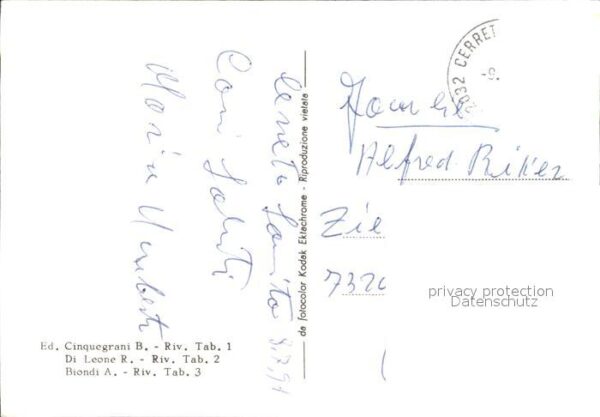 Cerreto Sannita 3.7.91
Cari Saluti
Maria Umberto
Ed. Cinquegrani B. - Riv. Tab. 1
Di Leone R. - Riv. Tab. 2
Biondi A. - Riv. Tab. 3
da fotocolor Kodak Ektachrome - Riproduzione vietata
82032 CERRET
-9.
Alfred
Zie
732
privacy protection
Datenschutz